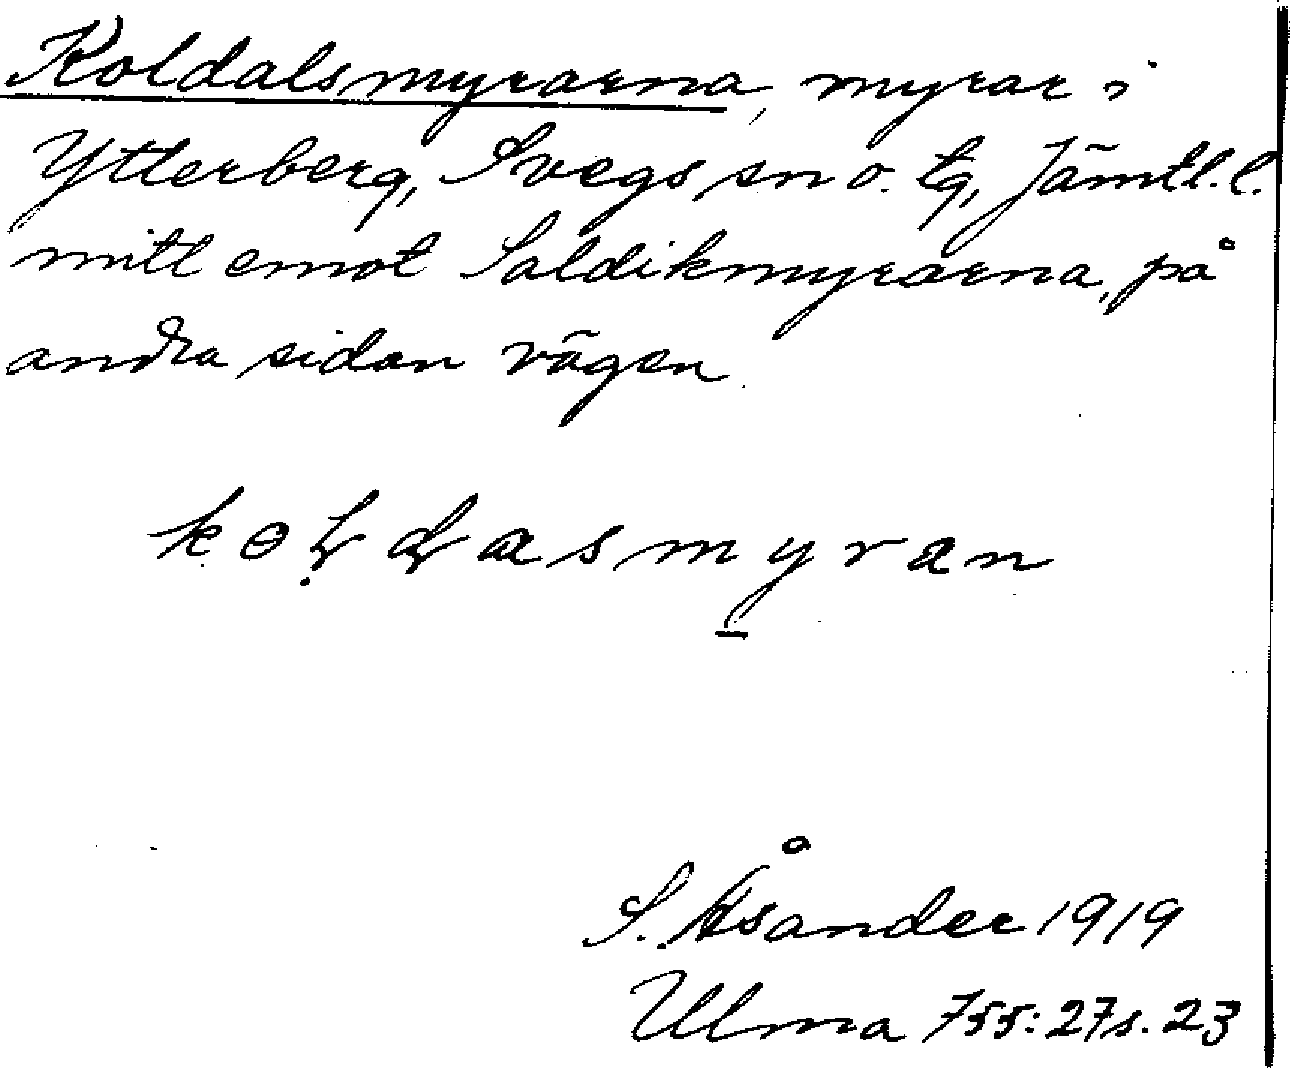 Koldalsmyrarna, myrar i
Ytterberg, Svegs sn o. tg, Jämtl. l.
mitt emot Saldikmyrarna, på
andra sidan vägen.
S. Åsander 1919
Ulma 755:27 s. 23